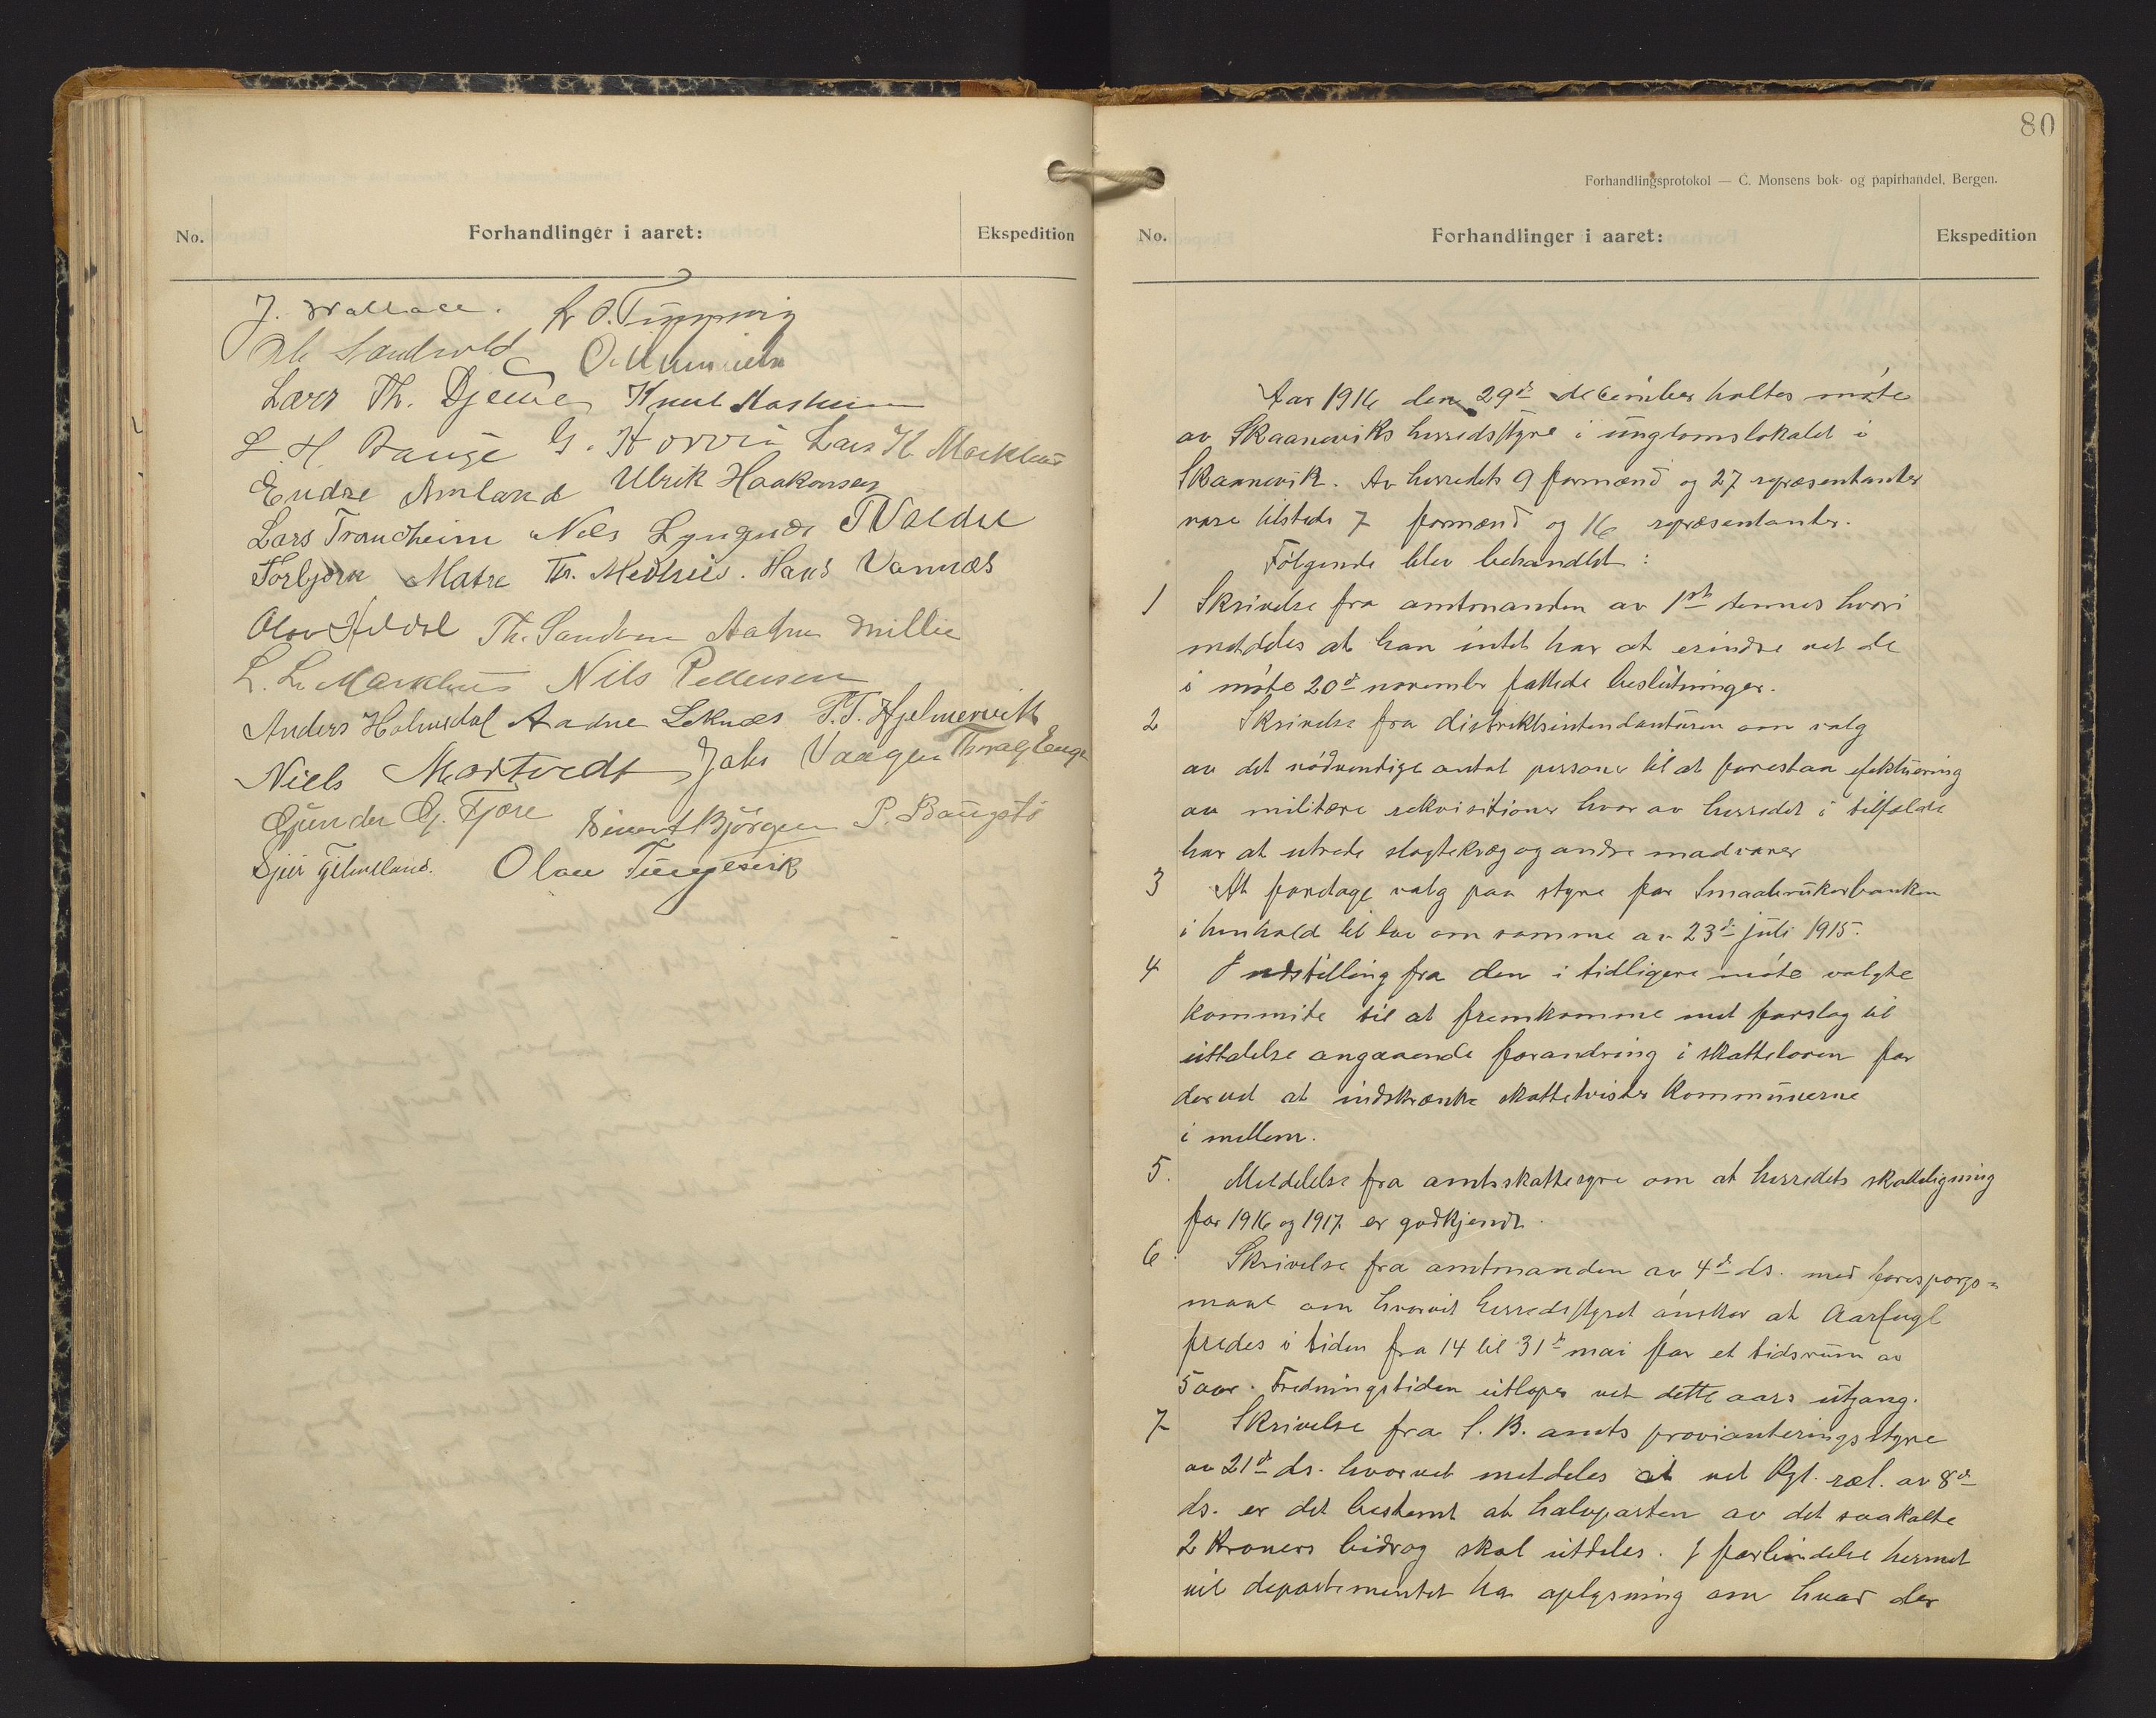 No.
Forhandlinger i aaret:
Ekspedition
J. Wallace.
Ole Sandvold
Lars Th. Djeme Knut
L. H. Bauge G. Horvei Lars K. Markhus
Endre Amland Ulrik Haakonsen
Lars Troudheim Nils Lyngnes T Valdal
Torbjørn Matre Th. Medhus. Hans Vannæs
Olav Heldal Th. Sandene Aadne Millie
L. L. Markhus Nils Pettersen
Anders Holmedal Aadne Leknæs P. T. Hjelmervik
Niels Mortvedt Jahs Vaagen
Gunder G. Fjøre Sivert Bjørgen P. Baugstø
Sjur Fjelland. Olav Tungesvik
80
Forhandlingsprotokol — C. Monsens bok- og papirhandel, Bergen.
No.
Forhandlinger i aaret:
Ekspedition
Aar 1916 den 29d december holtes møte
av Skaaneviks herredsstyre i ungdomslokalet i
Skaanevik. Av herredets 9 formænd og 27 repræsentanter
vare tilstede 7 formænd og 16 repræsentanter.
Følgende blev behandlet:
1 Skrivelse fra amtmanden av 1ste dennes hvori
meddeles at han intet har at erindre ved de
i møte 20d november fattede beslutninger.
2 Skrivelse fra distriktsintendanturen om valg
av det nødvendige antal personer til at forestaa efektuering
av militære rekvisitioner hvor av herredet i tilfælde
har at utrede slagtekvæg og andre madvarer
3 At foretage valg paa styre for Smaabrukerbanken
i henhold til lov om samme av 23d juli 1915.
4 Indstilling fra den i tidligere møte valgte
kommite til at fremkomme med forslag til
uttalelse angaaende forandring i skatteloven for
derved at indskrænke skattetvister kommunerne
i mellem.
5. Meddelelse fra amtsskattestyre om at herredets skatteligning
for 1916 og 1917 er godkjendt.
6 Skrivelse fra amtmanden av 4d ds. med forespørgs=
maal om hvorvit herredsstyret ønsker at Aarfugl
fredes i tiden fra 14 til 31d mai for et tidsrum av
5 aar. Fredningstiden utløper ved dette aars utgang.
7 Skrivelse fra S. B. amts provianteringsstyre
av 21d ds. hvorved meddeles at ved Kgl. res. av 8d
ds. er det bestemt at halvparten av det saakalte
2 Kroners bidrag skal utdeles. I forbindelse hermed
vil departementet ha oplysning om hvad der